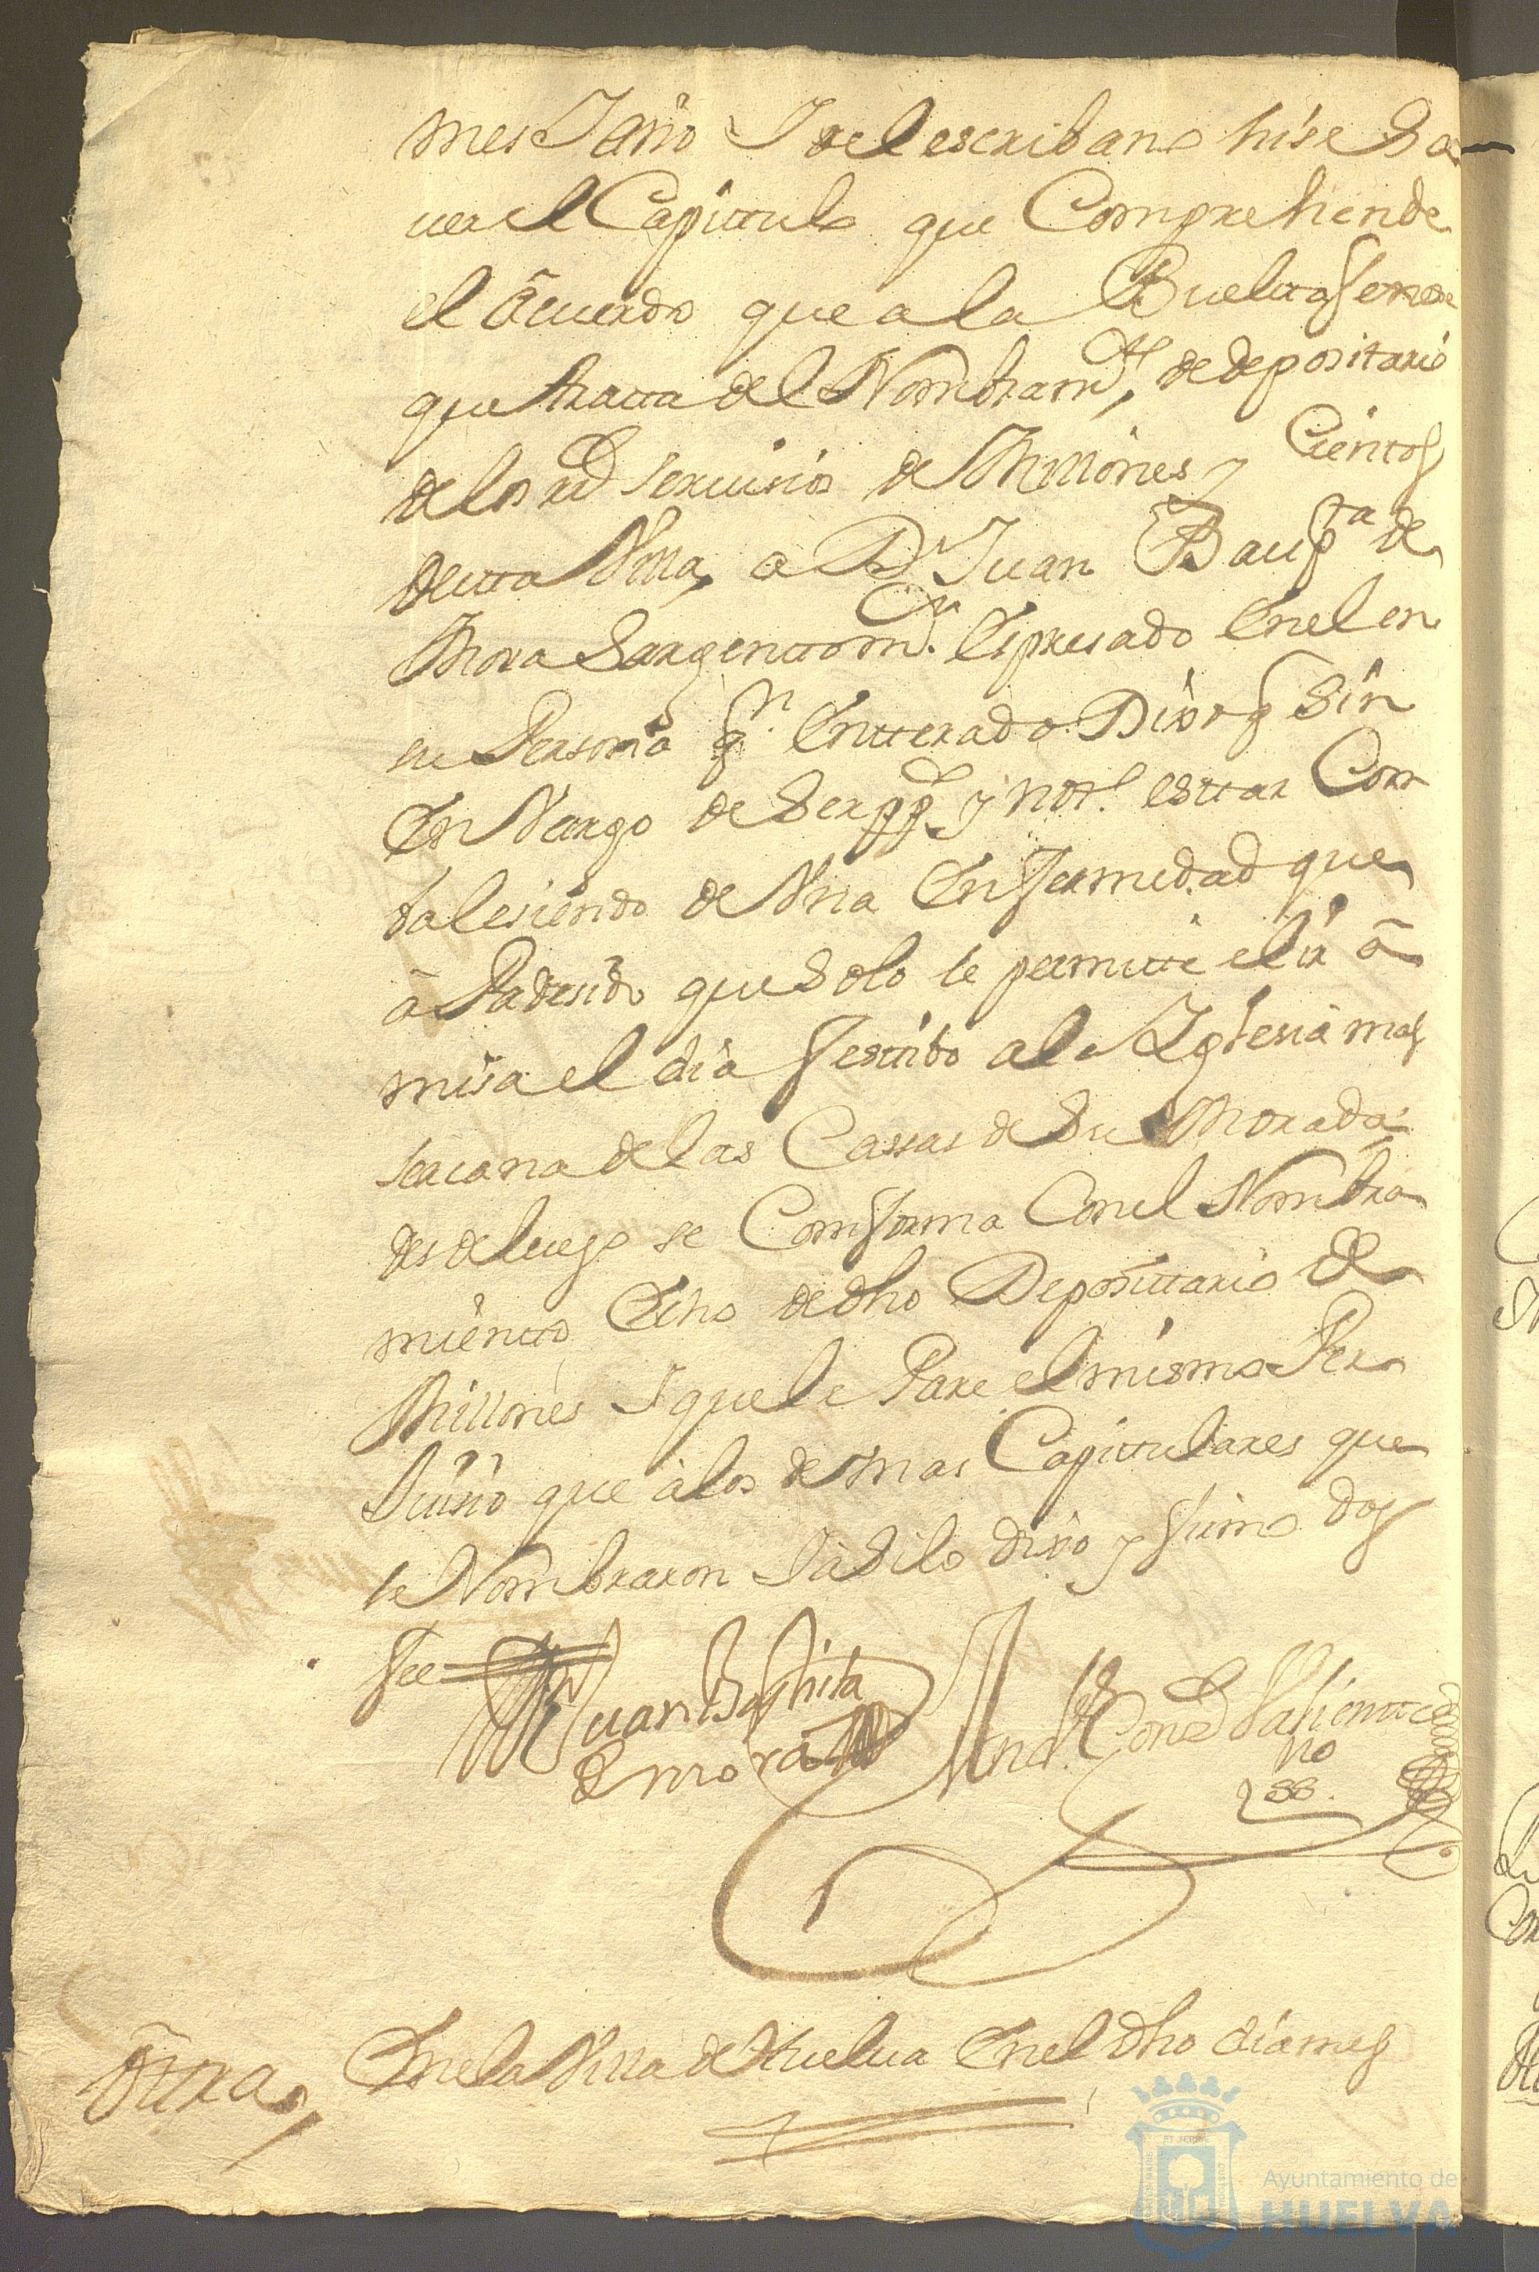 mes Y año Yo el escribano hise Sa
ver el Capittulo que Comprehende
el acuerdo que a la Buelta
que tratta del Nombram.to de depositario
de los rs servisios de Millones y Cientos
de esta Villa, a Dn Juan Baupta de
Mora Sargentto mr. Espresado En el en
su Persona qn. Entterado Dixo q Sin
En Vargo de Ser pp.co y nott.o esttar Com
balesiendo de Vna Enfermedad que
a Padesido que Solo le permitte el ir a
misa el dia festibo a la Yglesia mas
sercana de las Cassas de Su Morada
desde luego se Comforma Con el Nombra
miento Echo de dho Deposittario de
Millones Y que le Pare el mismo Per
Juisio que a los demas Capittulares que
le Nombraron Y asi lo dixo y firmo doy
fee
Juan Baptista
de mora
Valiente
Otra,
En la Villa de Huelva En el dho dia mes
Ayuntamiento de
HUELVA